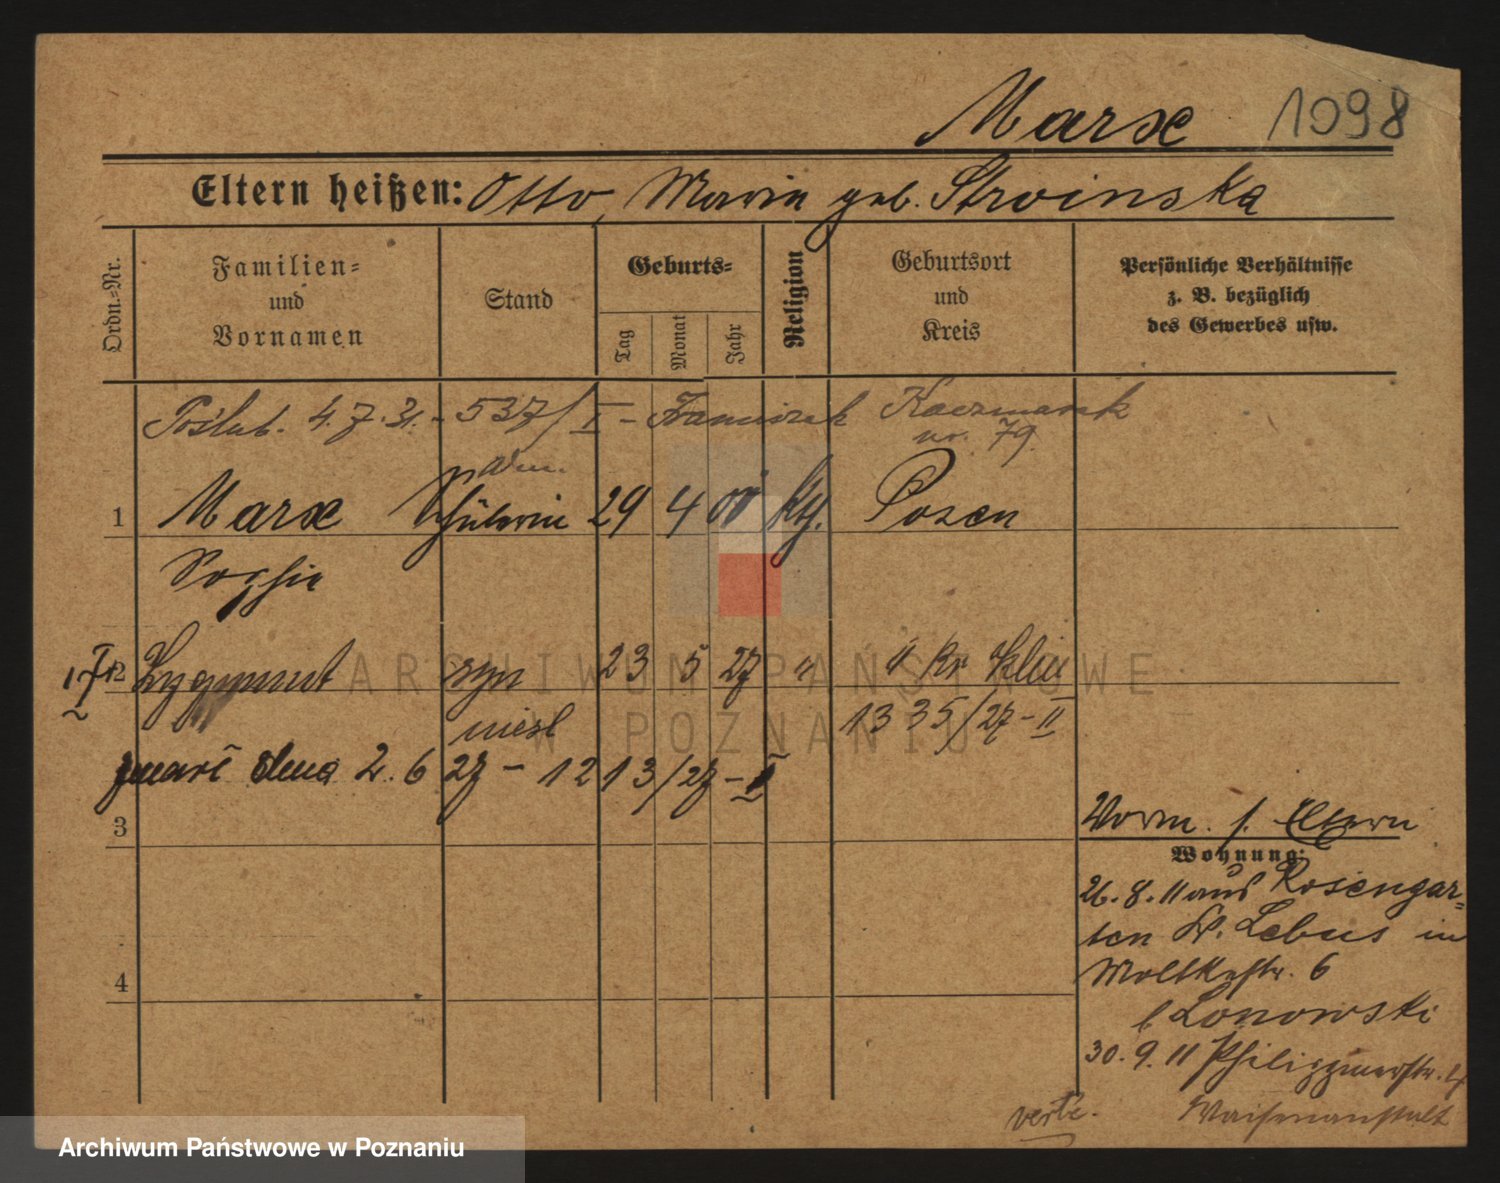 Marx 1098
Eltern heißen: Otto, Maria geb. Stroinska
Ordn.-Nr.
Familien-
und
Vornamen
Stand
Geburts-
Tag
Monat
Jahr
Religion
Geburtsort
und
Kreis
Persönliche Verhältnisse
z. B. bezüglich
des Gewerbes usw.
Poślub. 4.7.31. - 537/I - Franciszek Kaczmarek
nr. 79.
1 Marx Schülerin 29 4 00 kth. Posen
Sophie
2 Zygmunt syn 23 5 27 " " kr
nieśl 1335/27-II
dnia 2.6 27 - 1213/27-II
3
Vorm. s. Eltern
Wohnung:
26.8.11 aus Rosengar-
ten Kr. Lebus in
Moltkestr. 6
b Lonowski
4
30.9.11 Philippinerstr. 4
verte. Waisenanstalt
ARCHIWUM PAŃSTWOWE
W POZNANIU
Archiwum Państwowe w Poznaniu